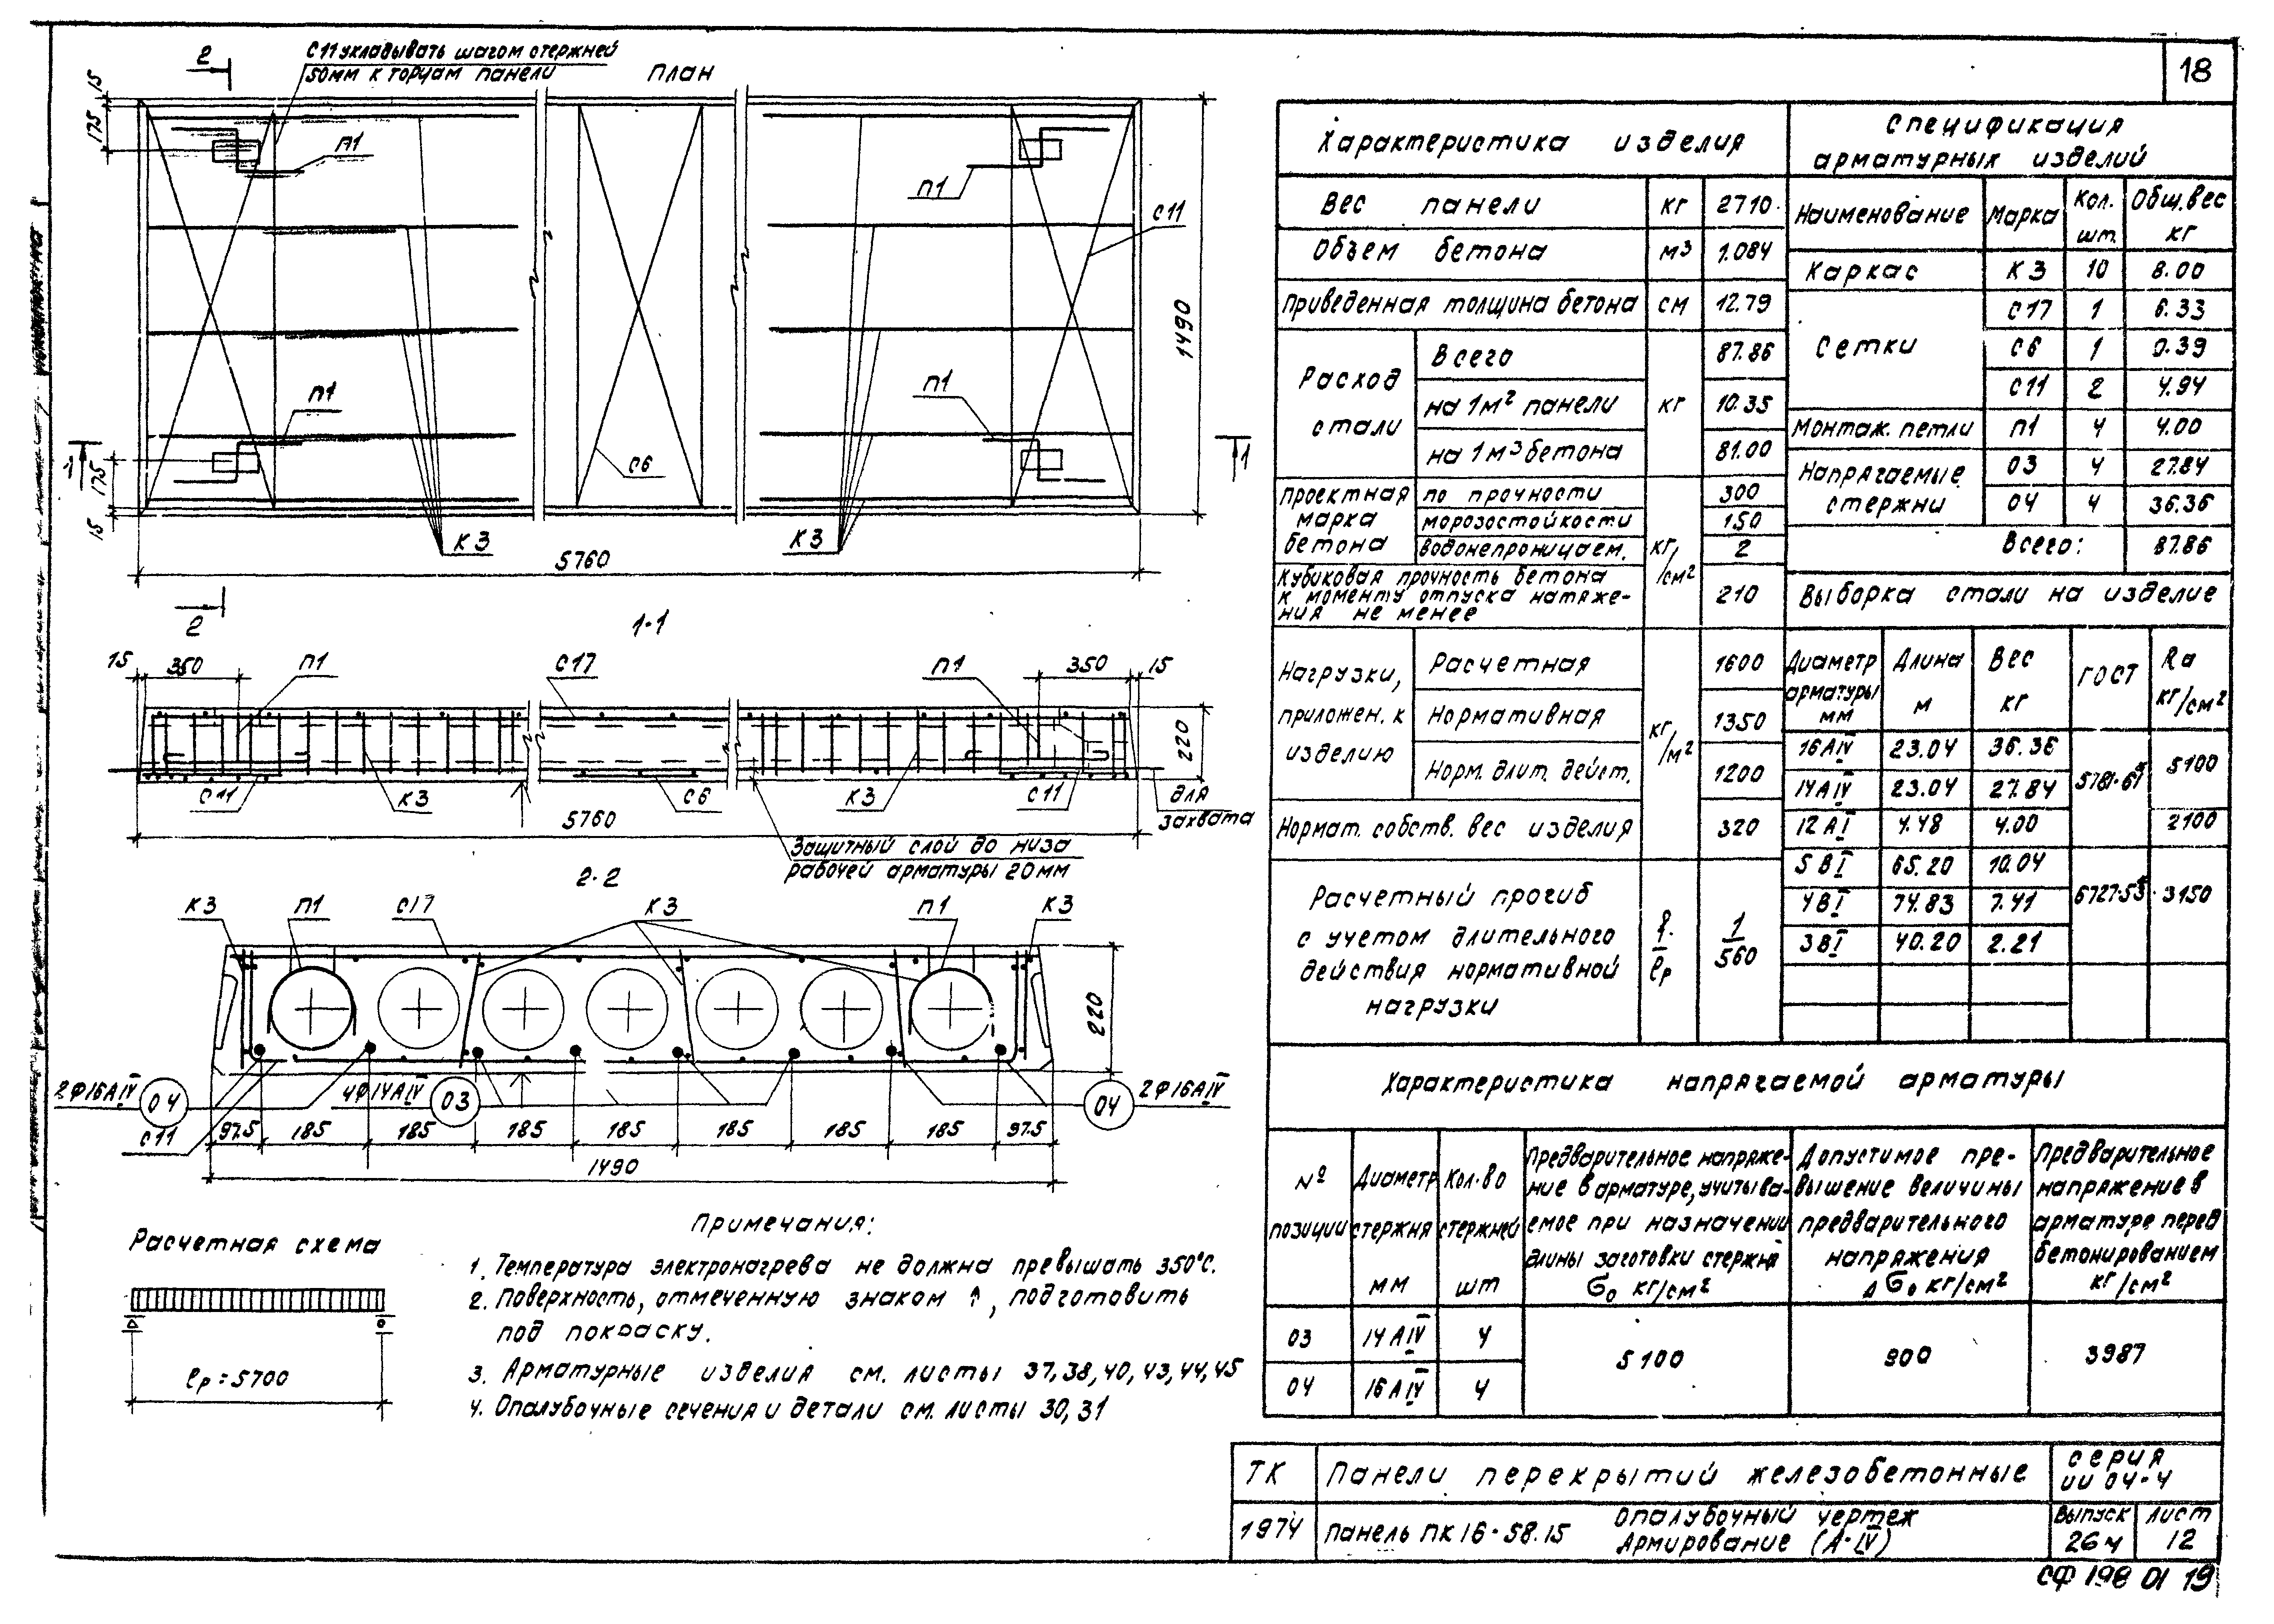 18
2
С11 укладывать шагом стержней
50мм к торцам панели
План
15
175
П1
П1
С11
1490
П1
П1
С6
1
1
175
15
К3
К3
5760
2
1-1
15
350
П1
С17
П1
350
15
220
С11
К3
С6
К3
С11
для
захвата
5760
Защитный слой до низа
рабочей арматуры 20мм
2-2
К3
П1
С17
К3
П1
К3
220
2Ф16АIV
04
4Ф14АIV
03
04
2Ф16АIV
С11
97.5
185
185
185
185
185
185
185
97.5
1490
Расчетная схема
ℓр=5700
Примечания:
1. Температура электронагрева не должна превышать 350°С.
2. Поверхность, отмеченную знаком ↑, подготовить
под покраску.
3. Арматурные изделия см. листы 37,38,40,43,44,45
4. Опалубочные сечения и детали см. листы 30,31
Характеристика изделия
Вес панели кг 2710
Объем бетона м3 1.084
Приведенная толщина бетона см 12.79
Расход стали
Всего 87.86
на 1м2 панели кг 10.35
на 1м3 бетона 81.00
Проектная марка бетона
по прочности 300
морозостойкости 150
водонепроницаем. кг/см2 2
Кубиковая прочность бетона
к моменту отпуска натяже-
ния не менее 210
Нагрузки, приложен. к изделию
Расчетная 1600
Нормативная кг/м2 1350
Норм. длит. дейст. 1200
Нормат. собств. вес изделия 320
Расчетный прогиб
с учетом длительного
действия нормативной
нагрузки
f/ℓр 1/560
Спецификация
арматурных изделий
Наименование Марка Кол. шт. Общ.вес кг
Каркас К3 10 8.00
Сетки
С17 1 6.33
С6 1 0.39
С11 2 4.94
Монтаж. петли П1 4 4.00
Напрягаемые стержни
03 4 27.84
04 4 36.36
Всего: 87.86
Выборка стали на изделие
Диаметр арматуры мм Длина м Вес кг ГОСТ Rа кг/см2
16АIV 23.04 36.36
14АIV 23.04 27.84 5100
12АI 4.48 4.00 2100
5ВI 65.20 10.04
4ВI 74.83 7.41 3150
3ВI 40.20 2.21
Характеристика напрягаемой арматуры
№ позиции
Диаметр стержня мм
Кол-во стержней шт
Предварительное напряже-
ние в арматуре, учитыва-
емое при назначении
длины заготовки стержня
σ0 кг/см2
Допустимое пре-
вышение величины
предварительного
напряжения
Δσ0 кг/см2
Предварительное
напряжение в
арматуре перед
бетонированием
кг/см2
03 14АIV 4
5100 900 3987
04 16АIV 4
ТК Панели перекрытий железобетонные
серия
ии 04-4
1974 Панель ПК16-58.15
Опалубочный чертеж
Армирование (А-IV)
Выпуск 26ч
Лист 12
СФ 198 01 19